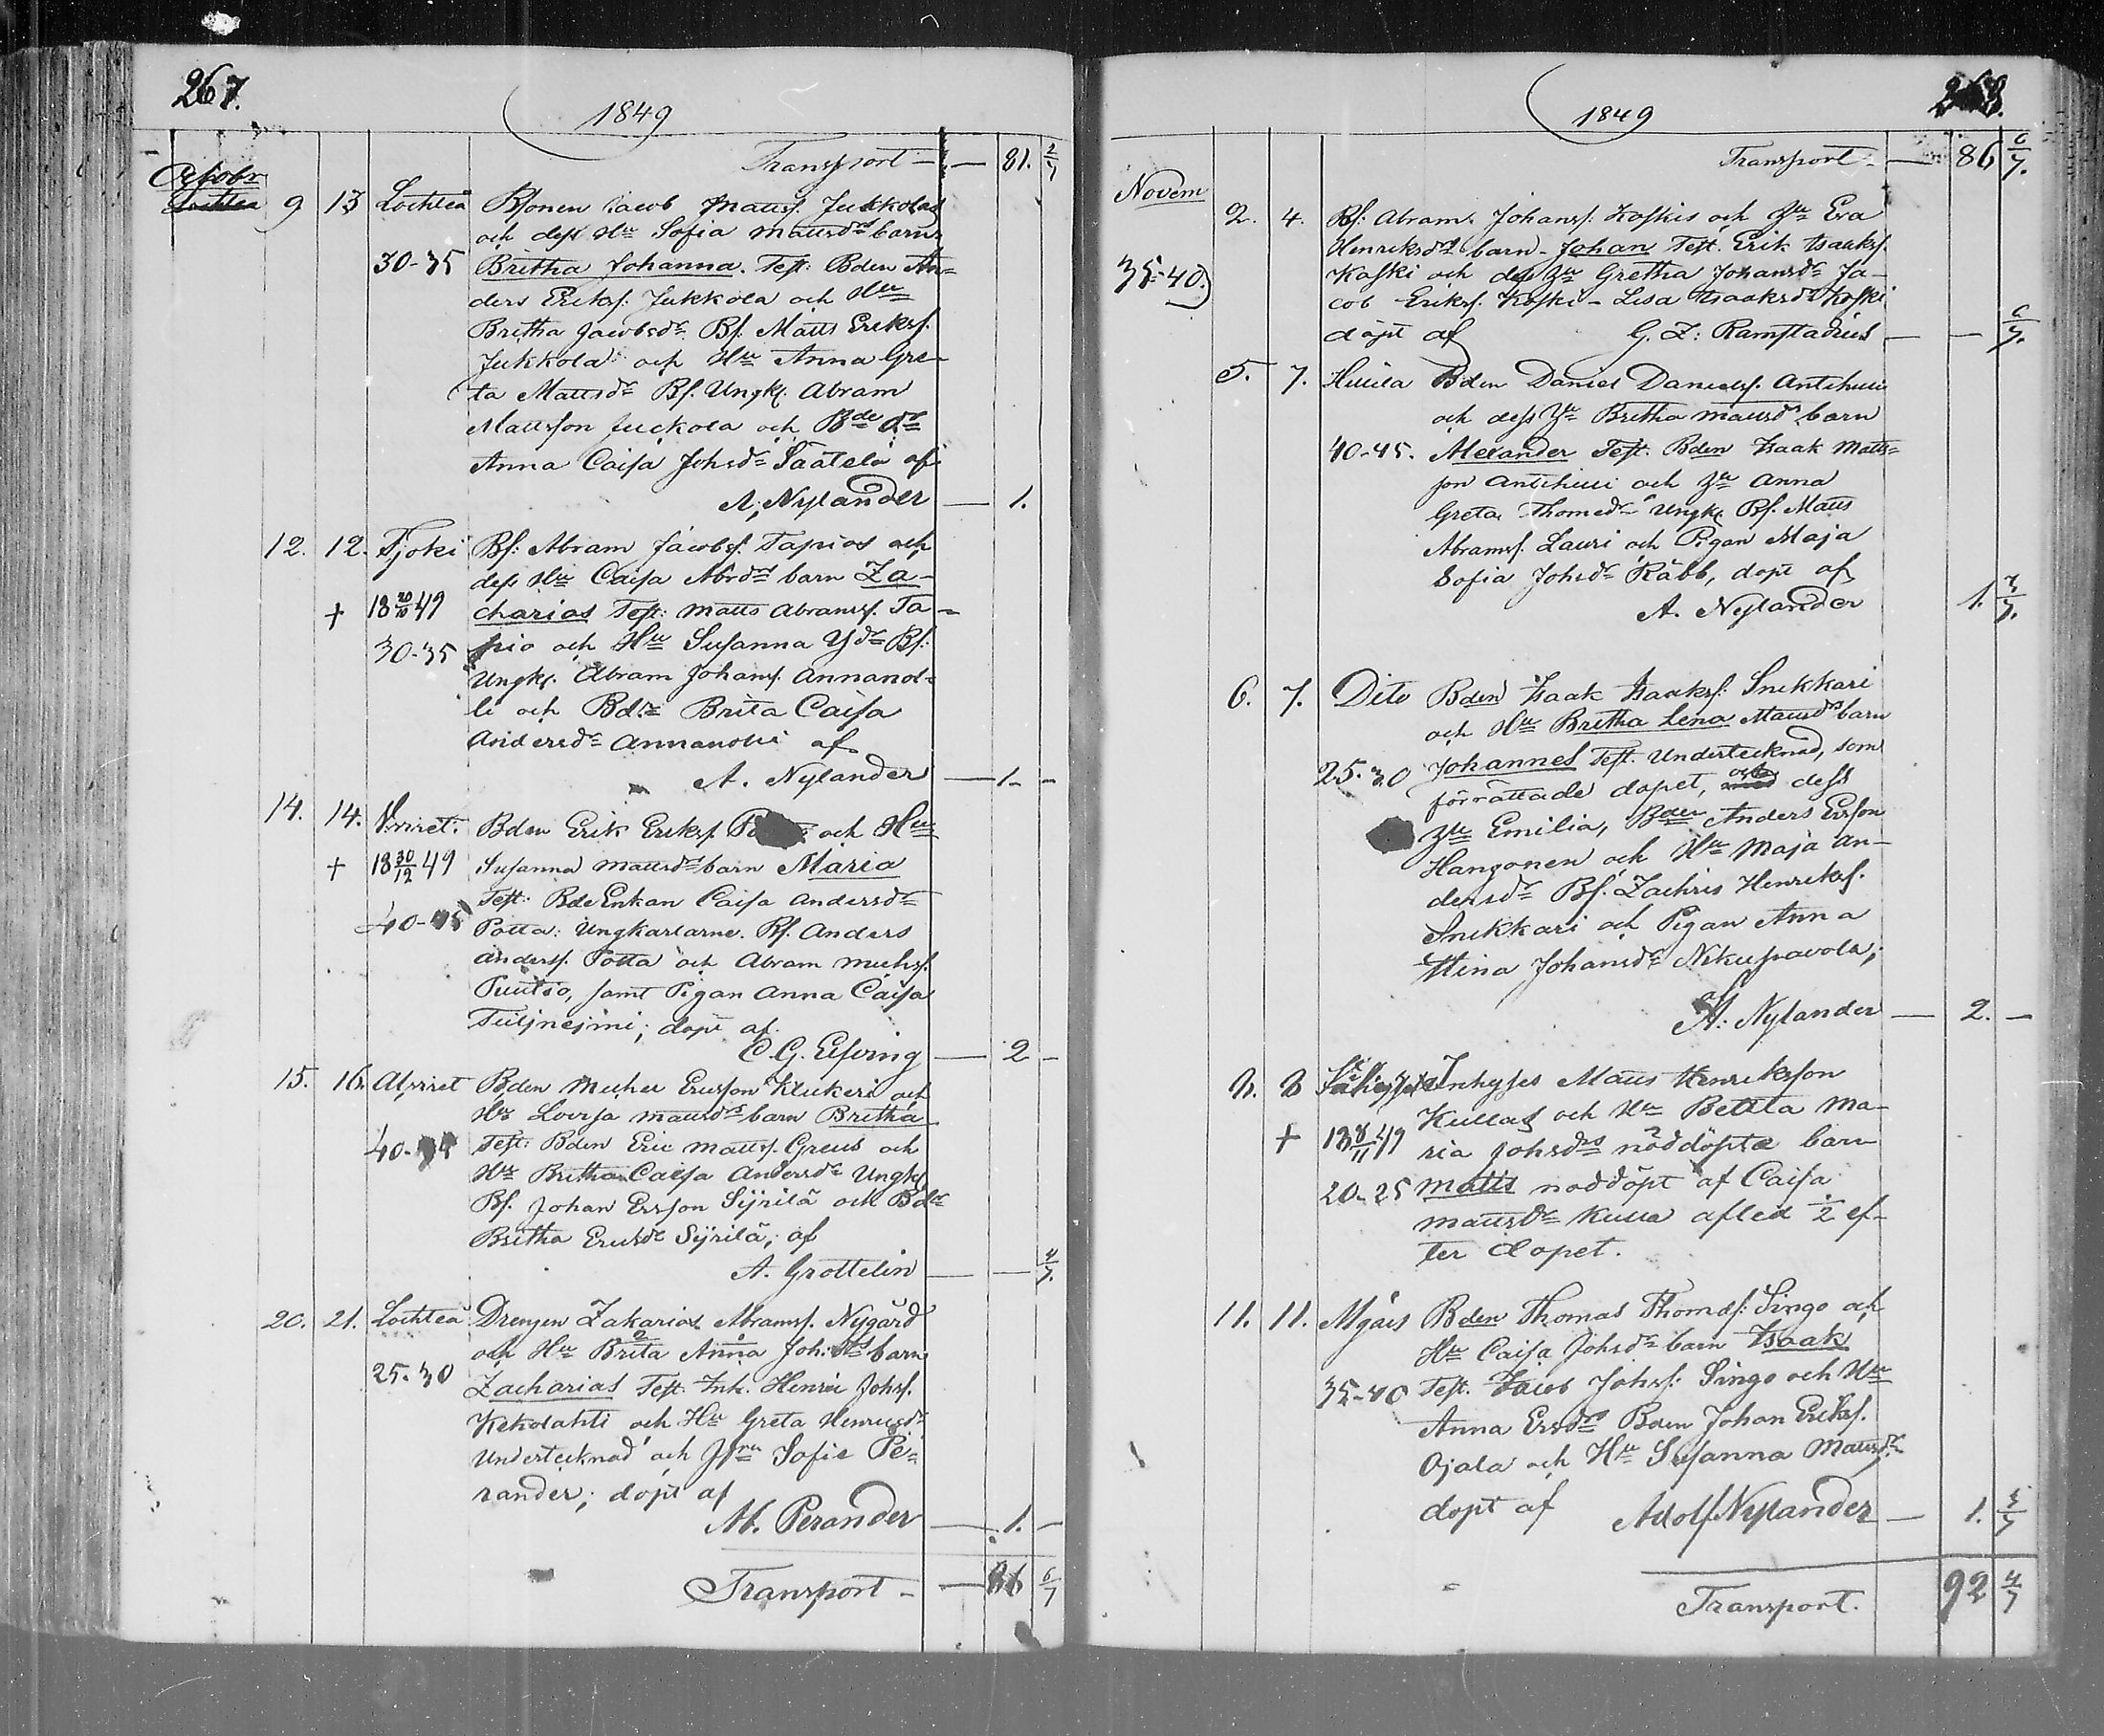 267.
1849
Transport — 81. 2/7
Octobr
9 13 Lochteå Bsonen Jacob Mattss. Jukkolas
och dess Hu Sofia Mattsdrs barn
30-35 Britha Johanna. Test: Bden An-
ders Erikss. Jukkola och Hu
Britha Jacobsdr Bs. Matts Erikss.
Jukkola och Hu Anna Gre-
ta Mattsdr Bs. Ungk. Abram
Mattsson Juckola och Bde dr
Anna Caisa Johsdr Säätelä af
A. Nylander — 1.
12. 12. Yjoki Bs: Abram Jacobss. Tapios och
dess Hu Caisa Abrdrs barn Za-
+ 18 20/10 49 charias Test: Matts Abramss. Ta-
30-35 pio och Hu Susanna Ydr Bs:
Ungk. Abram Johanss. Annanol-
li och Bdr Brita Caisa
Andersdr Annanolli af
A. Nylander — 1 -
14. 14. Yviret. Bden Erik Erikss. och Hu
+ 18 30/12 49 Susanna Mattsdrs barn Maria
Test: Bde Enkan Caisa Andersdr
40-45 Potta: Ungkarlarne. Bs. Anders
Anderss. Potta och Abram Michss.
Puutio, samt Pigan Anna Caisa
döpt af
C. G. Elfving — 2 -
15. 16. Alviret Bden Michel Ericsson Klukeri och
Hu Lovisa Mattsdrs barn Britha
40- Test: Bden Eric Mattss. Greus och
Hu Britha Caisa Andersdr Ungk.
Bs. Johan Ersson Sÿrilä och Bdr
Britha Ericsdr Sÿrilä; af
A. Grottelin — — 4/7.
20. 21. Lochteå Drengen Zakarias Abramss. Nygård
och Hu Brita Anna Joh:drs barn
25-30 Zacharias Test. Inh. Henric Johss.
Kekolahti och Hu Greta Henricsdr
Undertecknad och Fru Sofie Pe-
rander; döpt af
Ab. Perander — 1. -
Transport — 86 6/7
268.
1849
Transport — 86 6/7.
Novem
2. 4. Bs: Abram Johanss. Koskis och Hu Eva
Henriksdrs barn Johan Test. Erik Isaakss.
35-40. Koski och dess Hu Gretha Johansdr Ja-
cob Erikss. Koski - Lisa Isaaksdr Koski
döpt af G. Z: Ramstadius — — 6/7.
5. 7. Huila Bden Daniel Danielss. Antihuu
och dess Hu Bretha Mattsdrs barn
40-45. Alexander Test: Bden Isaak Matts-
son Antihuu och Hu Anna
Greta Thomsdr Ungk. Bs. Matts
Abramss. Lauri och Pigan Maja
Sofia Johsdr Räbb, döpt af
A. Nylander 1. 3/7.
6. 7. Dito Bden Isaak Isaakss: Snikkari
och Hu Bretha Lena Mattsdrs barn
25-30 Johannes Test. Undertecknad, som
förrättade dopet, och dess
Hu Emilia, Bden Anders Ersson
Hangonen och Hu Maja An-
dersdr Bs. Zachris Henrikss.
Snikkari och Pigan Anna
Stina Johansdr Nikupavola;
A. Nylander — 2. -
8. 8 Inhyses Matts Henriksson
Kullas och Hu Beata Ma-
+ 18 8/11 49 ria Johsdrs nöddöpta barn
20-25 Matts nöddöpt af Caisa
Mattsdr Kulla afled ½ ef-
ter dopet.
11. 11. Mgäis Bden Thomas Thomass: Singo och
Hu Caisa Johsdrs barn Isaak
35-40 Test. Jacob Johss: Singo och Hu
Anna Ersdr Bden Johan Erikss.
Ojala och Hu Susanna Mattsdr
döpt af Adolf Nylander — 1. 5/7
Transport. 92 4/7